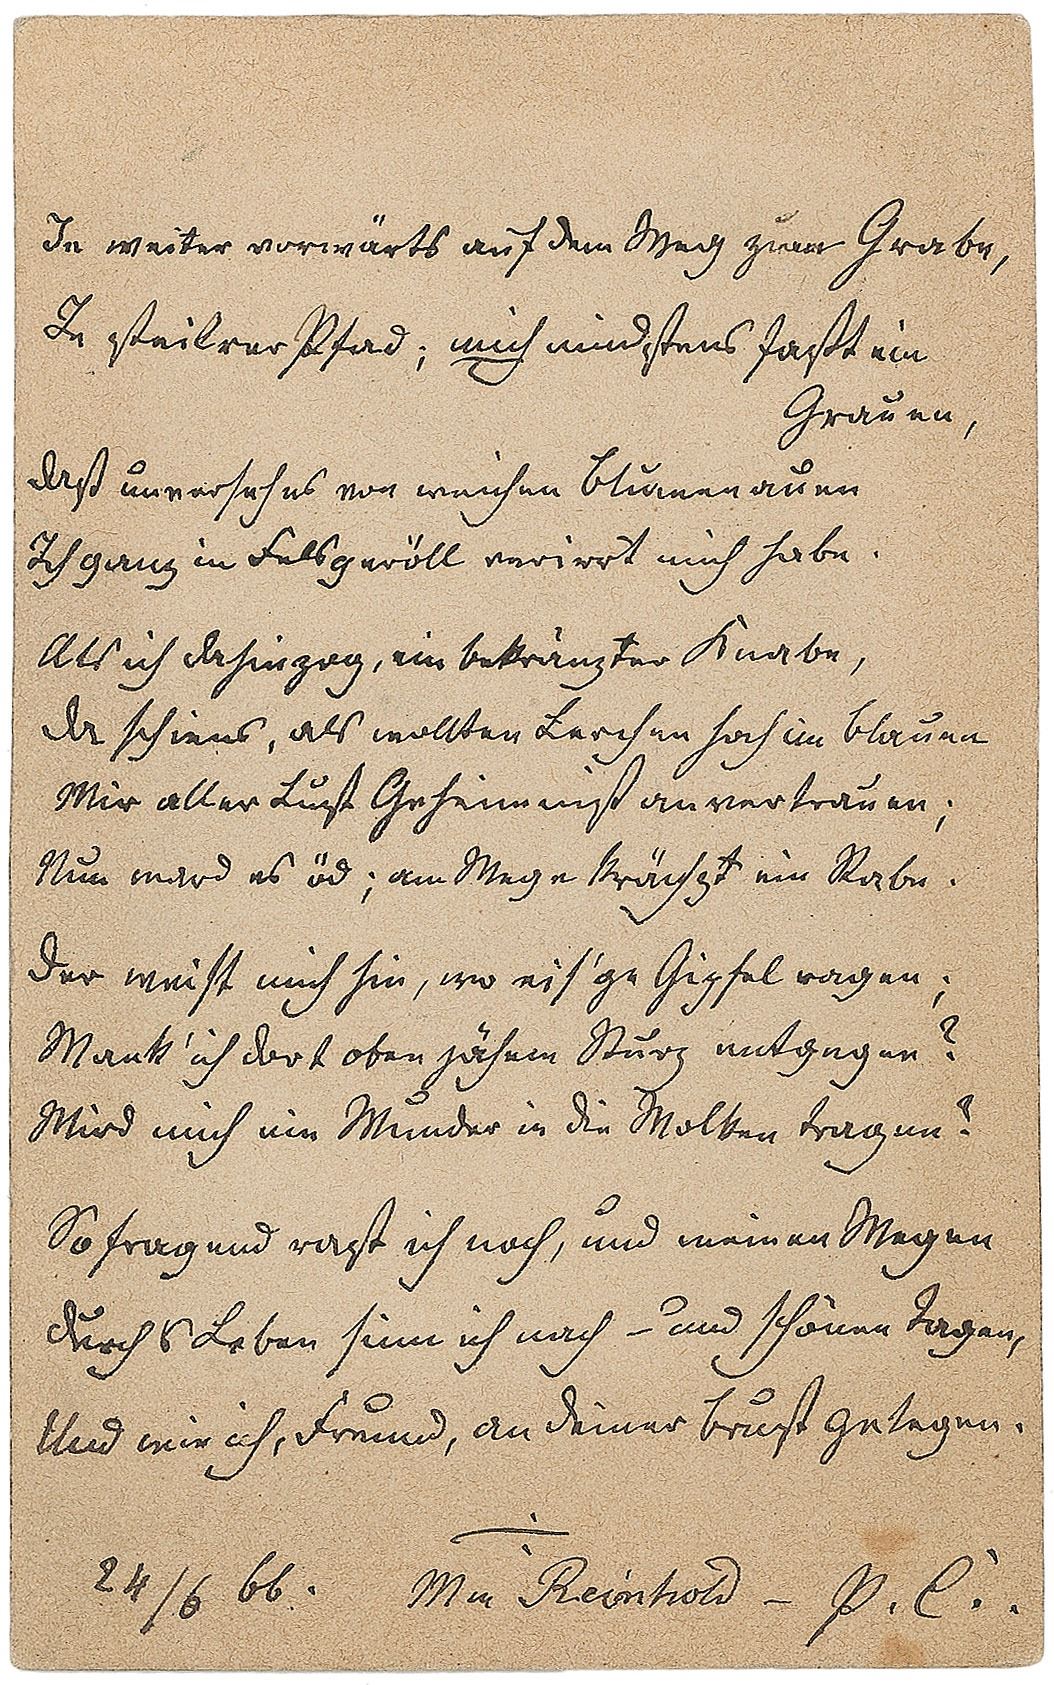 Je weiter vorwärts auf dem Weg zum Grabe,
Je steilrer Pfad; mich mindstens faßt ein
Grauen,
Daß unversehns von weichen Blumenauen
Ich ganz in Felsgeröll verirrt mich habe.
Als ich dahinzog, ein bekränzter Knabe,
Da schiens, als wollten Lerchen hoch im Blauen
Mir aller Lust Geheimniß anvertrauen;
Nun ward es öd; am Wege krächzt ein Rabe.
Der weist mich hin, wo eis'ge Gipfel ragen;
Wank' ich dort oben jähem Sturz entgegen?
Wird mich ein Wunder in die Wolken tragen?
So fragend rast ich noch, und meinen Wegen
Durchs Leben sinn ich nach – und schönen Tagen,
Und wie ich, Freund, an deiner Brust gelegen.
24/6 66. Reinhold – P. C..